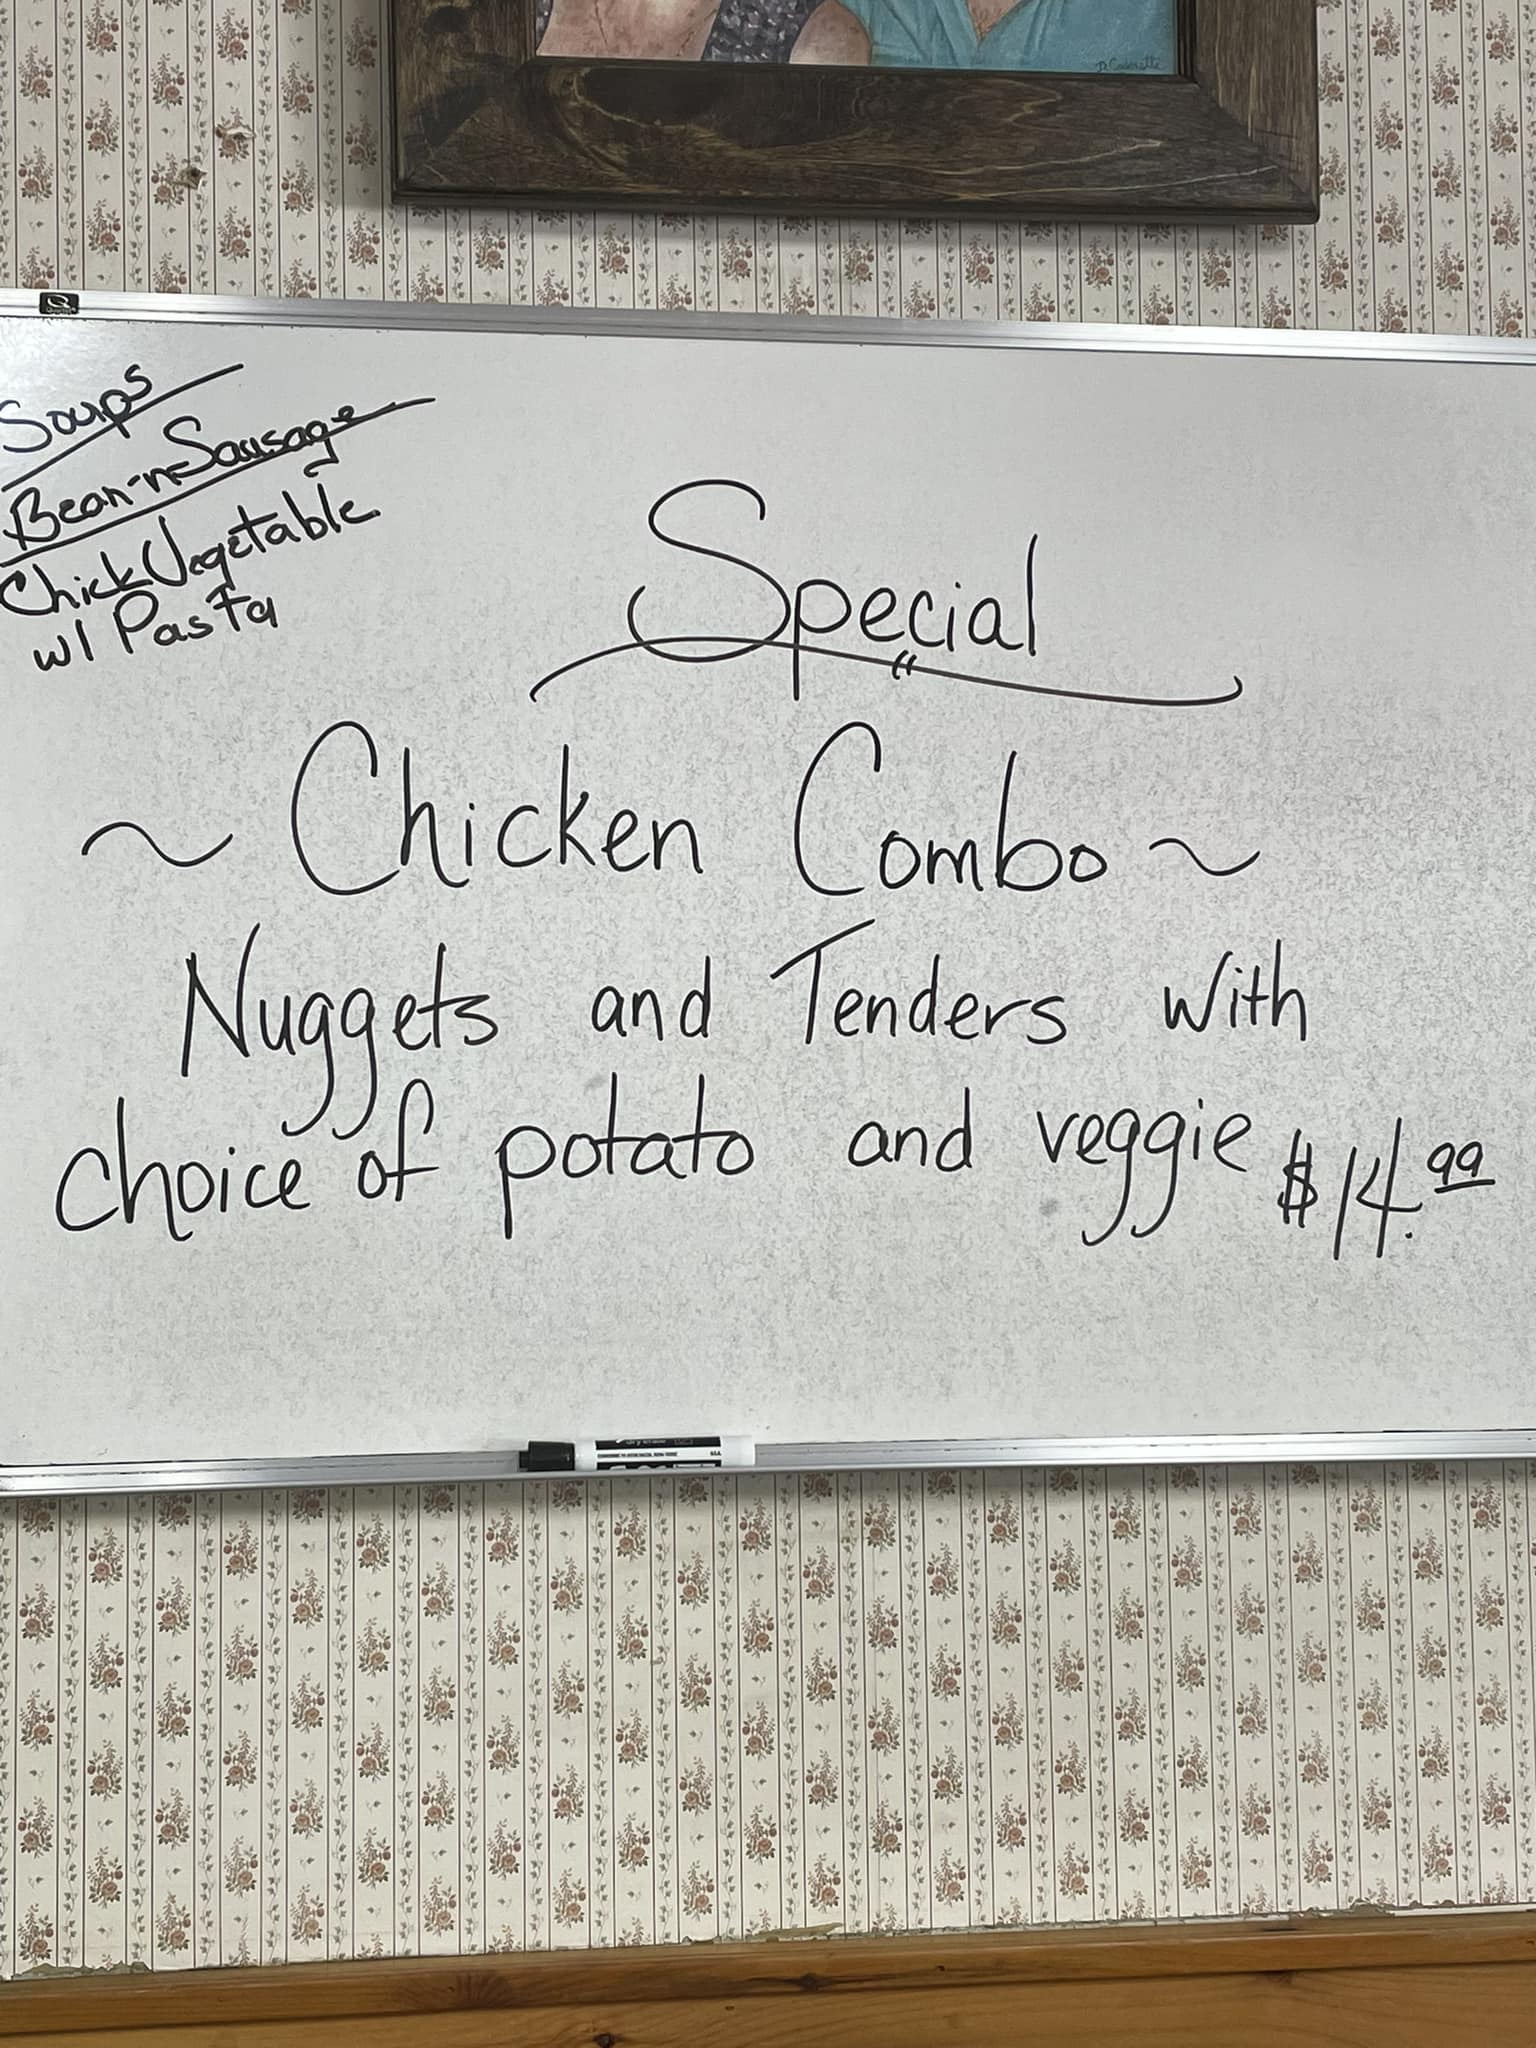 Soups
Bean-n-Sausage
Chick Vegetable
w/ Pasta
Special
~ Chicken Combo ~
Nuggets and Tenders with
choice of potato and veggie $14.99